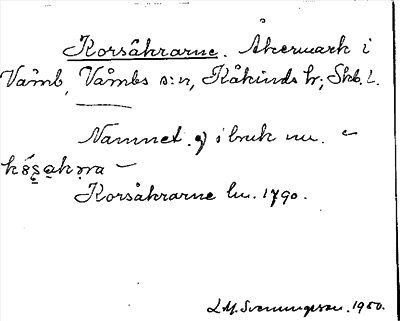 Korsåkrarne. Åkermark i
Våmb, Våmbs s:n, Kåkinds hr; Skb. L.
Namnet ej i bruk nu. –
Korsåkrarne lm. 1790.
L. M. Svenungsson. 1950.